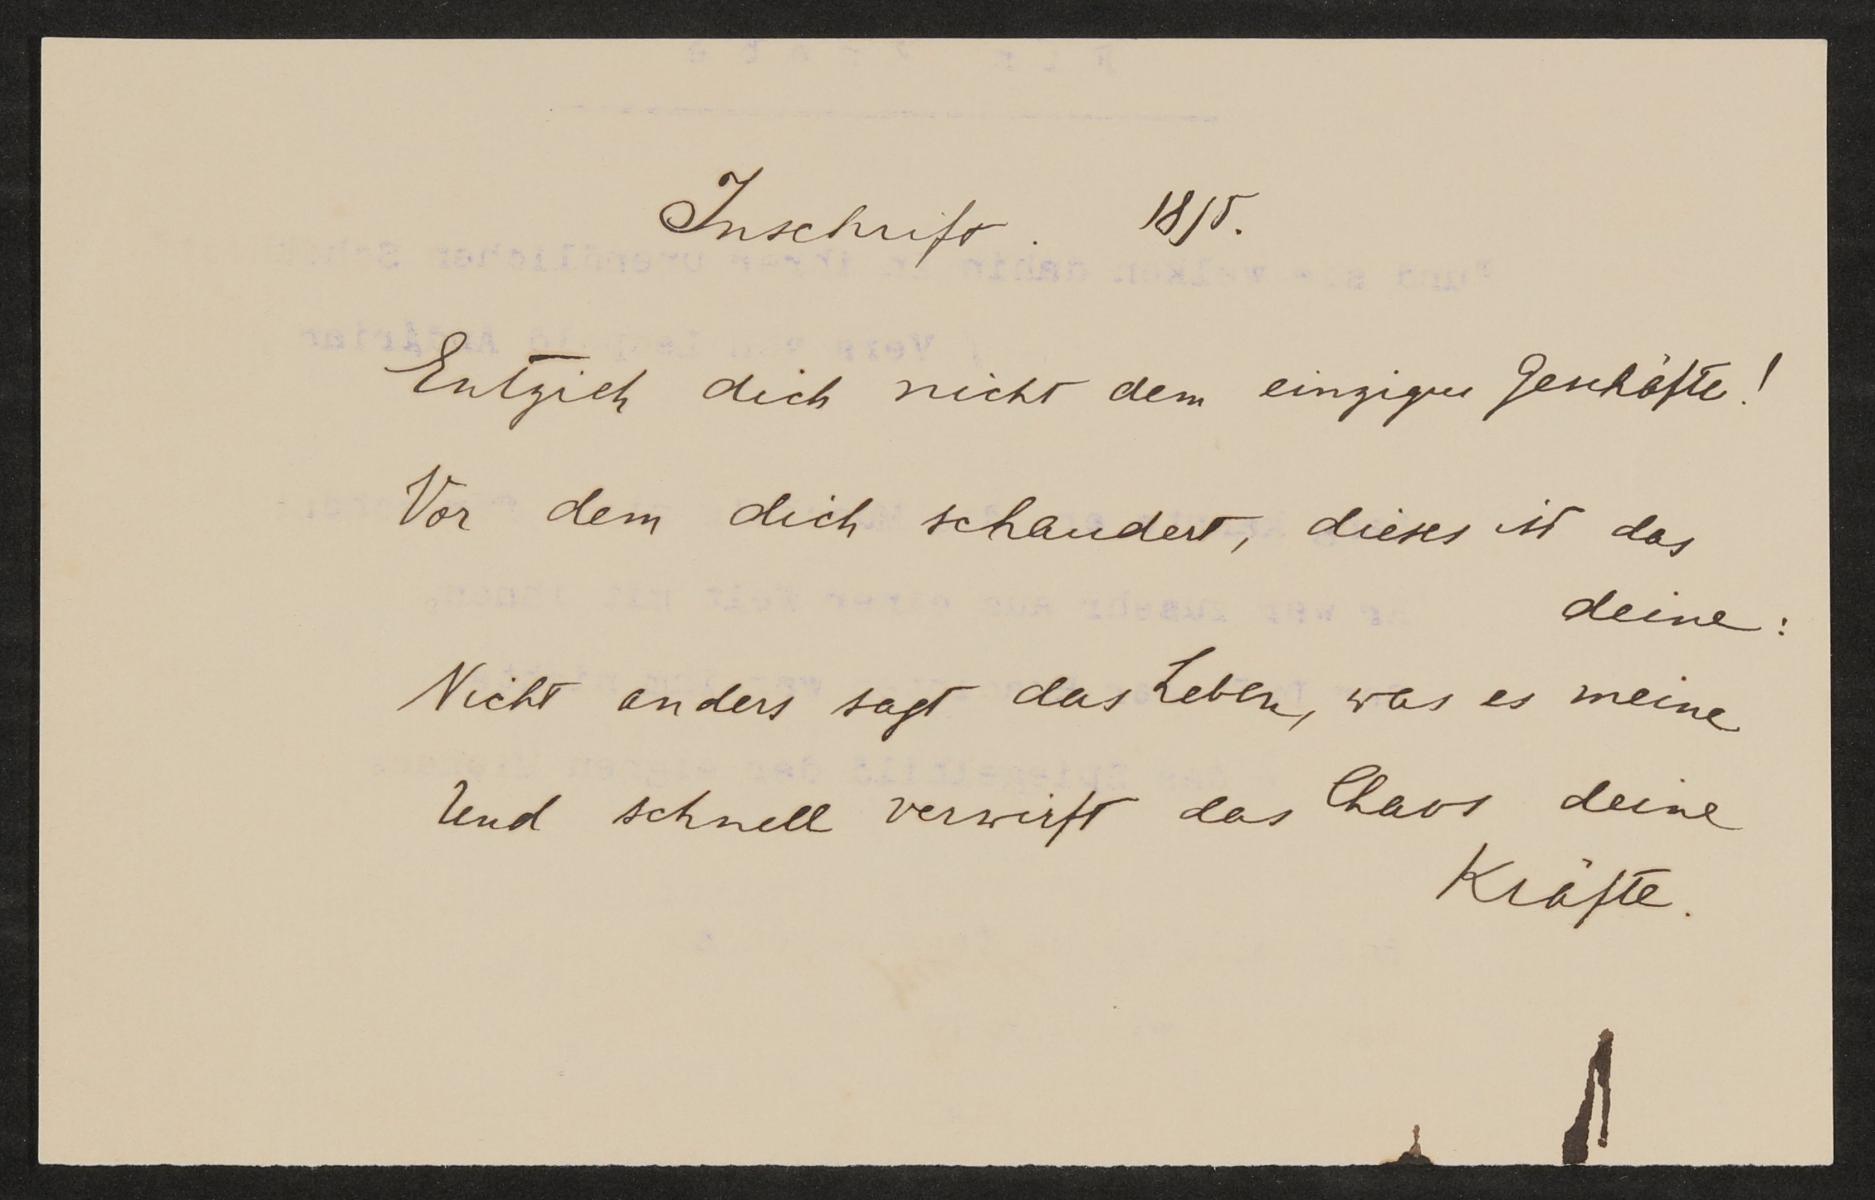 Inschrift. 1815.
Entzieh dich nicht dem einzigen Geschäfte!
Vor dem dich schaudert, dieses ist das
deine:
Nicht anders sagt das Leben, was es meine
Und schnell verwirft das Chaos deine
Kräfte.